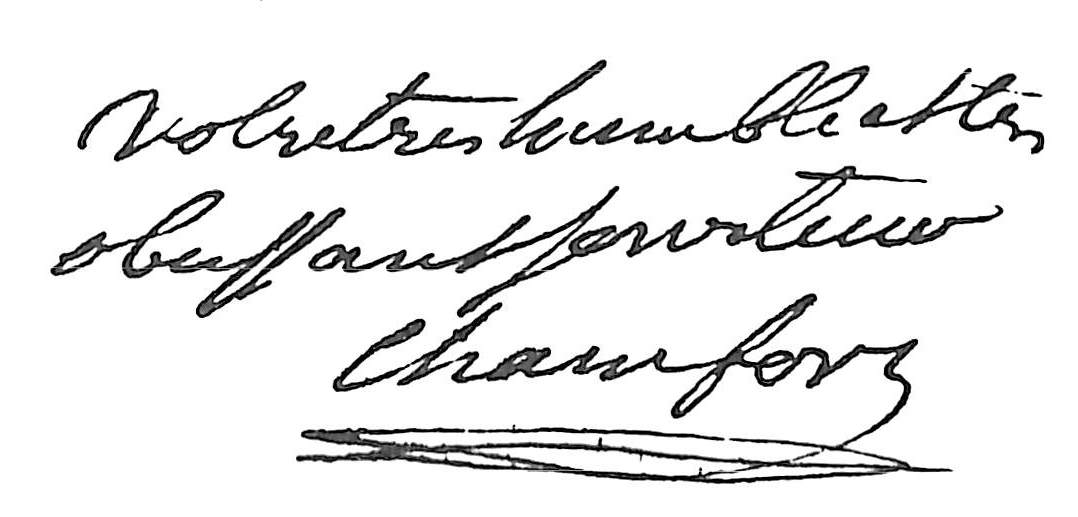 Votre tres humble et tres
obeissant serviteur
Chamfort